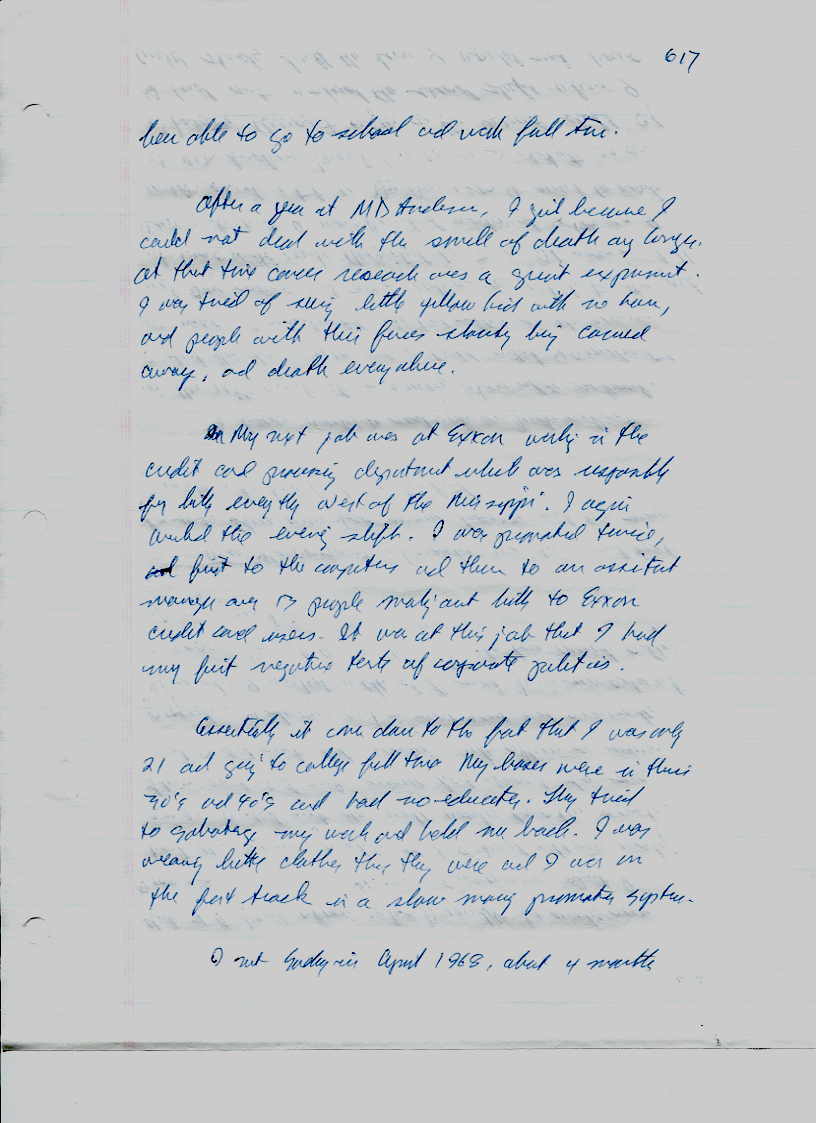 617
been able to go to school and work full time.
After a year at MD Anderson, I quit because I
could not deal with the smell of death any longer.
at that time cancer research was a great experiment.
I was tired of seeing little yellow kids with no hair,
and people with their faces slowly being carved
away, and death everywhere.
My next job was at Exxon working in the
credit card processing department which was responsible
for billing everything west of the Mississippi. I again
worked the evening shift. I was promoted twice,
first to the computers and then to an assistant
manager over people mailing out bills to Exxon
credit card users. It was at this job that I had
my first negative taste of corporate politics.
Essentially it came down to the fact that I was only
21 and going to college full time My bosses were in their
30's and 40's and had no education. They tried
to sabotage my work and hold me back. I was
wearing better clothes than they were and I was on
the fast track in a slow moving promotion system.
I met in April 1968, about 4 months